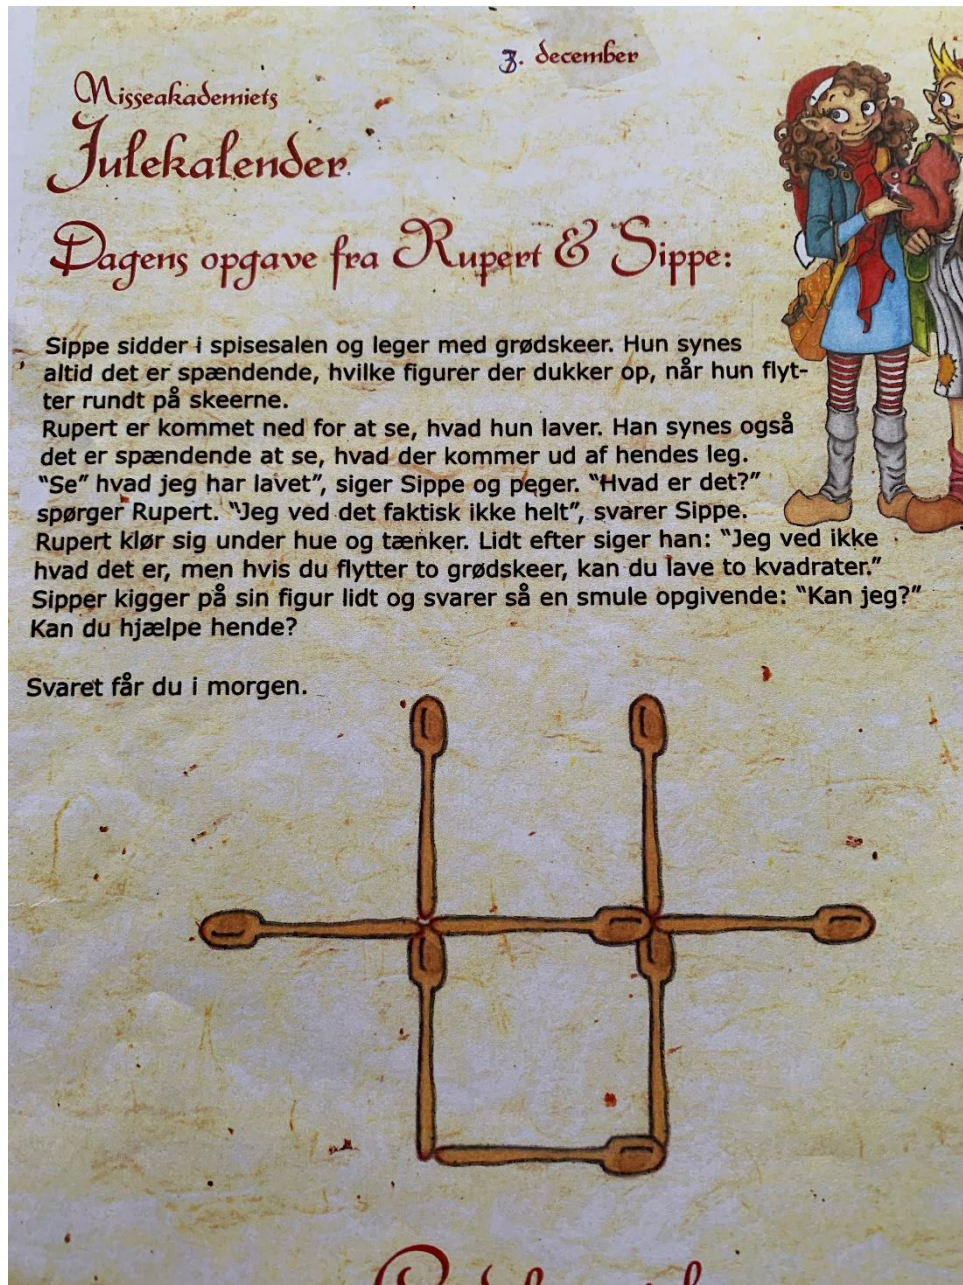 3. december
Nisseakademiets
Julekalender
Dagens opgave fra Rupert & Sippe:
Sippe sidder i spisesalen og leger med grødskeer. Hun synes
altid det er spændende, hvilke figurer der dukker op, når hun flyt-
ter rundt på skeerne.
Rupert er kommet ned for at se, hvad hun laver. Han synes også
det er spændende at se, hvad der kommer ud af hendes leg.
“Se” hvad jeg har lavet”, siger Sippe og peger. “Hvad er det?”
spørger Rupert. “Jeg ved det faktisk ikke helt”, svarer Sippe.
Rupert klør sig under hue og tænker. Lidt efter siger han: “Jeg ved ikke
hvad det er, men hvis du flytter to grødskeer, kan du lave to kvadrater.”
Sipper kigger på sin figur lidt og svarer så en smule opgivende: “Kan jeg?”
Kan du hjælpe hende?
Svaret får du i morgen.